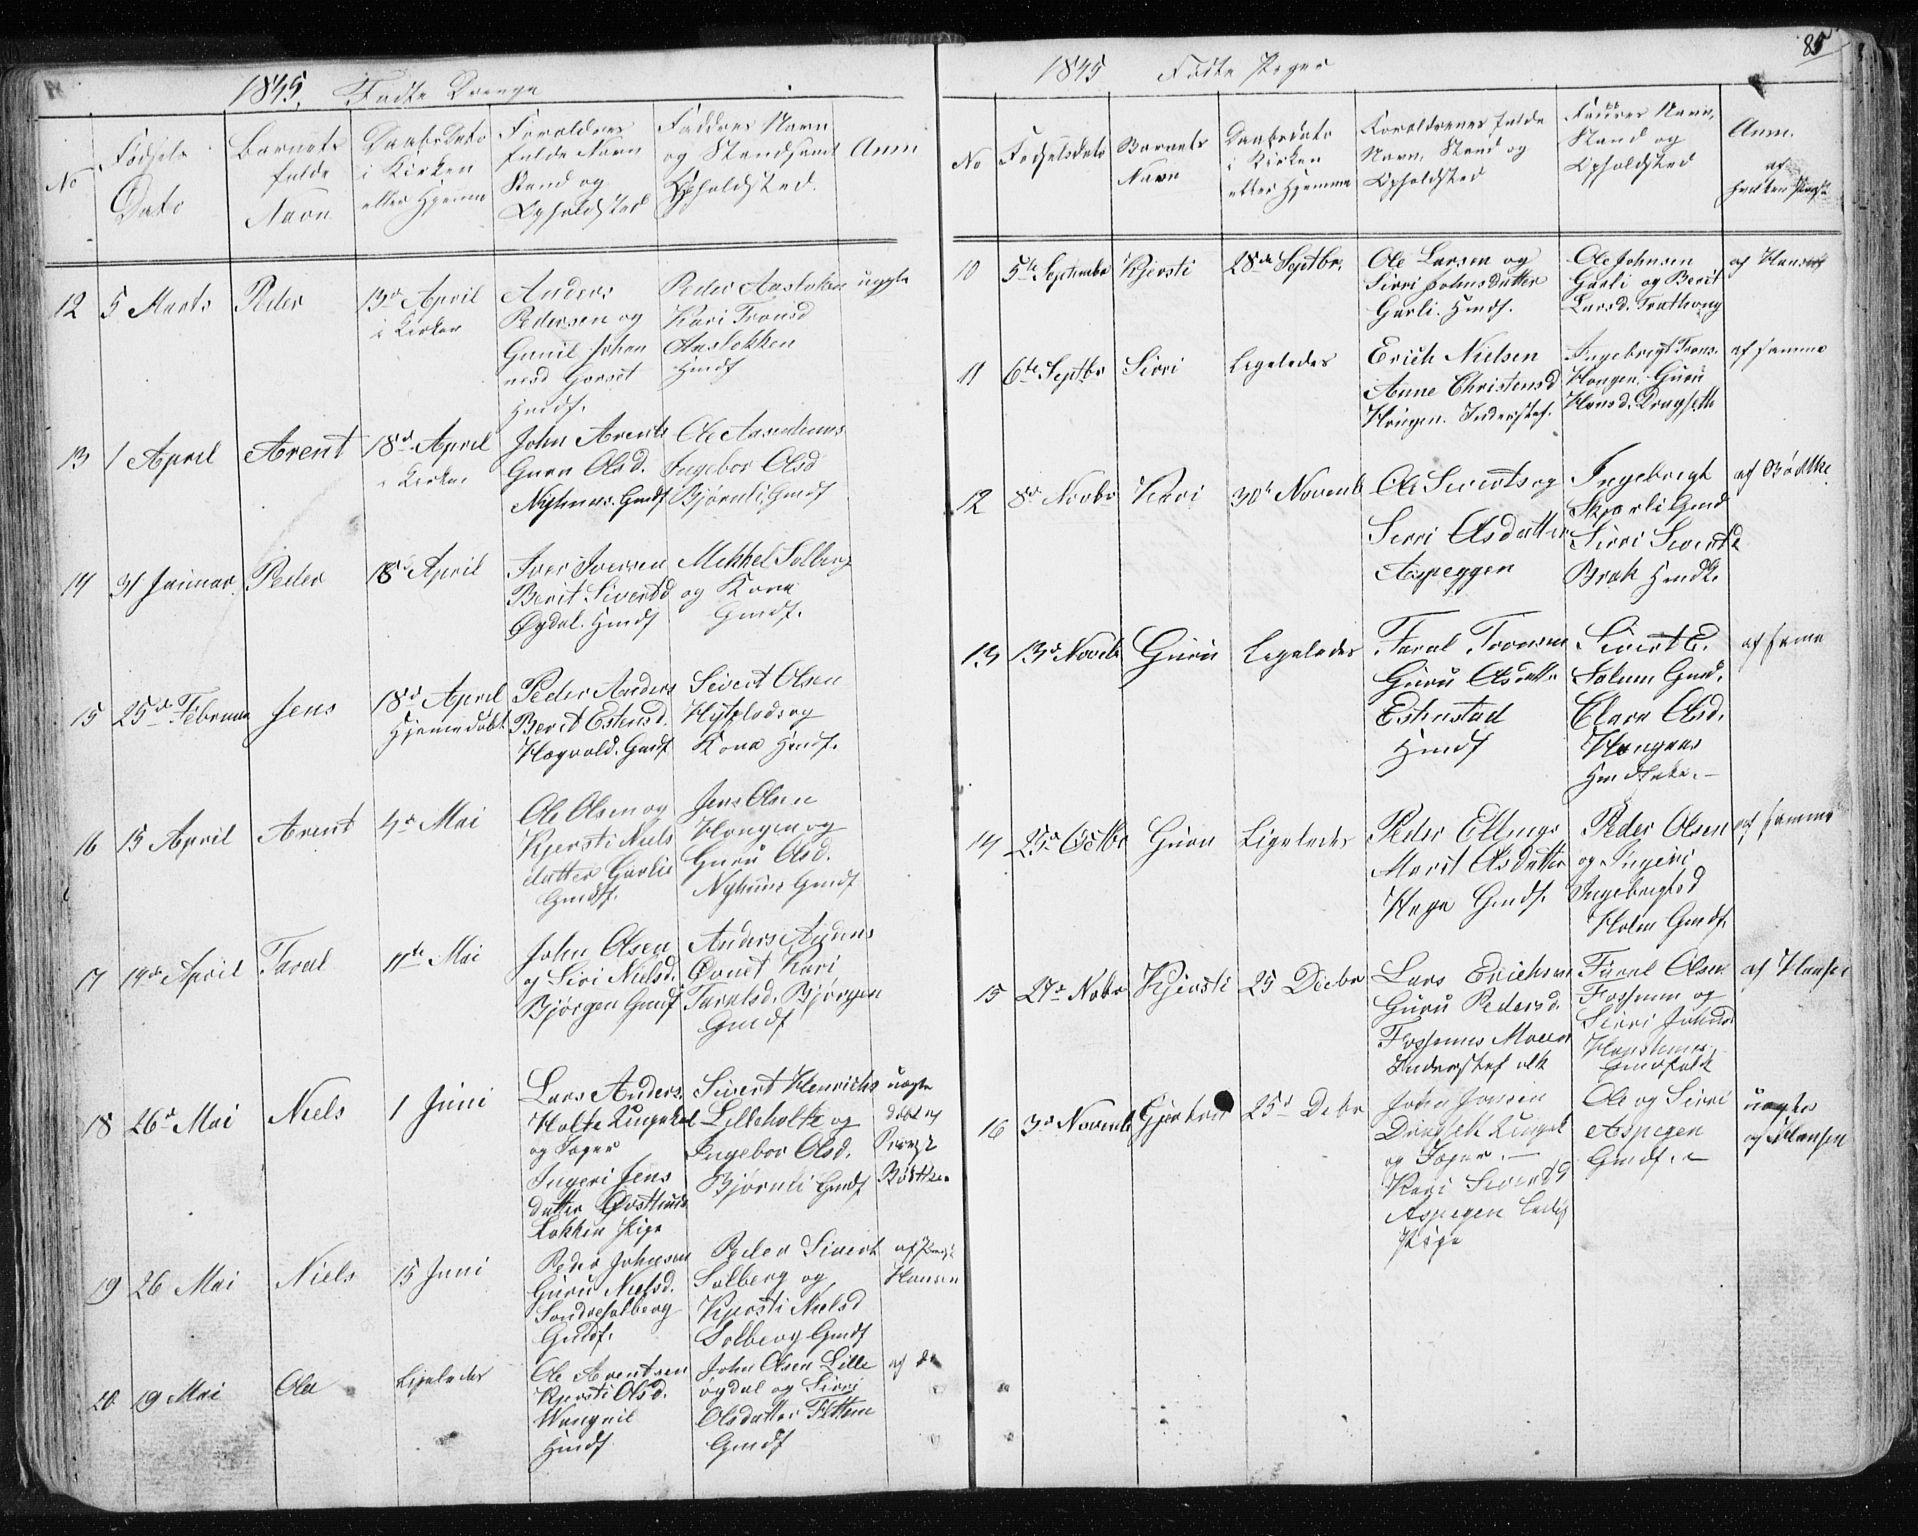 1845. Fødte Drenge
No
Fødsels
Dato
Barnets
fulde
Navn
Daabs Dato
i Kirken
eller Hjemme
Foreldres
fulde Navn
Stand og
Opholdsted
Faddres Navn
og Stand samt
Opholdsted.
Anm
12 5 Marts Peder
13de April
i Kirken
Anders
Pedersen og
Gunil Johan
nesd Gorset
Hmdf.
Peder Aaslokken
Kari Tronsd
Aaslokken
Hmdf
uægte
13 1 April Arent
18de April
i Kirken
John Arents
Guru Olsd.
Nyhuus. Gmdf
Ole Aasenhuus
Ingebor Olsd
Bjørnli. Gmdf
14 31 Januar. Peder
18de April
Iver Iversen
Berit Sivertsd
Øydal. Hmdf
Mekkel Solberg
og Kone
Gmdf.
15 25de Februar Jens
18de April
Hjemmedøbt
Peder Anders
Berit Estensd.
Hogvold. Gmdf
Sivert Olsen
Hytplads og
Kone Hmdf.
16 15 April Arent
4de Mai
Ole Olsen og
Kjersti Niels
datter Garlie
Gmdf.
Jens Olsen
Haugen og
Guru Olsd.
Nyhuus Gmdf
17 14de April Taral
11te Mai
John Olsen
og Siri Nielsd.
Bjørgen Gmdf
Anders Arnens
Øvnet Kari
Taralsd. Bjørgen
Gmdf
18 26de Mai Niels
1 Juni
Lars Anders.
Holte Ungekal
og Soger
Ingeri Jens
datter Østhuus
Løkken Pige
Sivert Henrichs
Lilleholte og
Ingebor Olsd.
Bjørnli Gmdf
uægte
døbt af
Præst
Bødtke.
19 26 Mai Niels
15 Juni
Peder Johnsen
Guru Nielsd.
Søndresolberg
Gmdf.
Peder Sivert
Solberg og
Kjersti Nielsd
Solberg Gmdf
af Præst
Hansen
20 19 Mai Ole
Ligeledes
Ole Arentsen
Kjersti Olsd.
Wangnil
Hmdf
John Olsen Lille
øydal og Sirri
Olsdatter Flottem
Gmdf
af do
85
1845 Fødte Piger
No
Fødselsdato
Barnets
Navn
Daabsdato
i Kirken
eller Hjemme
Foreldrenes fulde
Navn, Stand og
Opholdsted
Faddres Navn,
Stand og
Opholdsted
Anm.
af
hvilken Præst
10 5te September Kjersti 28de Septbr.
Ole Larsen og
Sirri Johnsdatter
Garli. Hmdf.
Ole Johnsen
Garli og Berit
Larsd. Trathoug
af Hansen
11 6te Septbr Sirri Ligeledes
Erich Nielsen
Anne Christensd
Haugen. Inderstef.
Ingebrigt Trons.
Haugen. Guru
Hansd. Dragseth
af samme
12 8de Novbr Kari 30te Novemb
Ole Sivertsog
Sirri Olsdatter
Aspeggen
Ingebrigt
Skjorli Gmd
Sirri Sivertsd
Brak Hmdf.
af Bødtke
13 13de Novbr Guru Ligeledes
Taral Tronsen
Guru Olsdatt
Estenstad
Hmdf
Sivert E.
Solem Gmd.
Clara Olsd.
Haugens
Hmdfolk. —
af samme
14 25de Octbr Guru Ligeledes
Peder Ellings
Marit Olsdatter
Hage Gmdf.
Peder Olsen
og Ingeri
Ingebrigtsd
Holm Gmdf.
af samme
15 27de Nobr Kjersti 25 Decbr
Lars Erichsen
Guru Pedersd.
Fossemes Moeen
Inderstef olk
Taral Olsen
Fossum og
Sirri Johnsd
Gmdfolk
af Hansen
16 3de Novemb Gjertru 25de Debr
John Joenn
Dragseth Ungkal
og Soger. —
Kari Sivertsd
Aspegen Ledig
Pige
Ole og Sirri
Aspegen
Gmdf. —
uægte
af Hansen